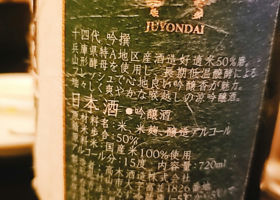 JUYONDAI
十四代 吟撰
兵庫県特A地区産酒造好適米50%磨
山形酵母を使用し、長期低温醗酵による
フレッシュで心地良い吟醸香が魅力。
瑞々しく爽やかな喉越しの涼吟醸酒。
日本酒・吟醸酒
原材料名:米、米麹、醸造アルコール
精米歩合:50%
原料米:国産米100%使用
アルコール分:15度 内容量:720ml
高木酒造株式会社
山形県村山市大字富並1826番地